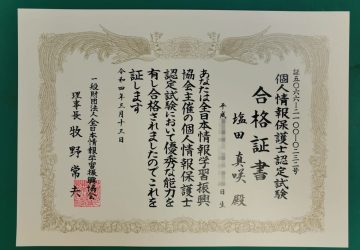 個人情報保護士認定試験
合格証書
塩田 真咲 殿
平成
日生
あなたは全日本情報学習振興
協会主催の個人情報保護士
認定試験において優秀な能力を
有し合格されましたのでこれを
証します
令和四年三月十三日
一般財団法人全日本情報学習振興協会
理事長 牧野常夫